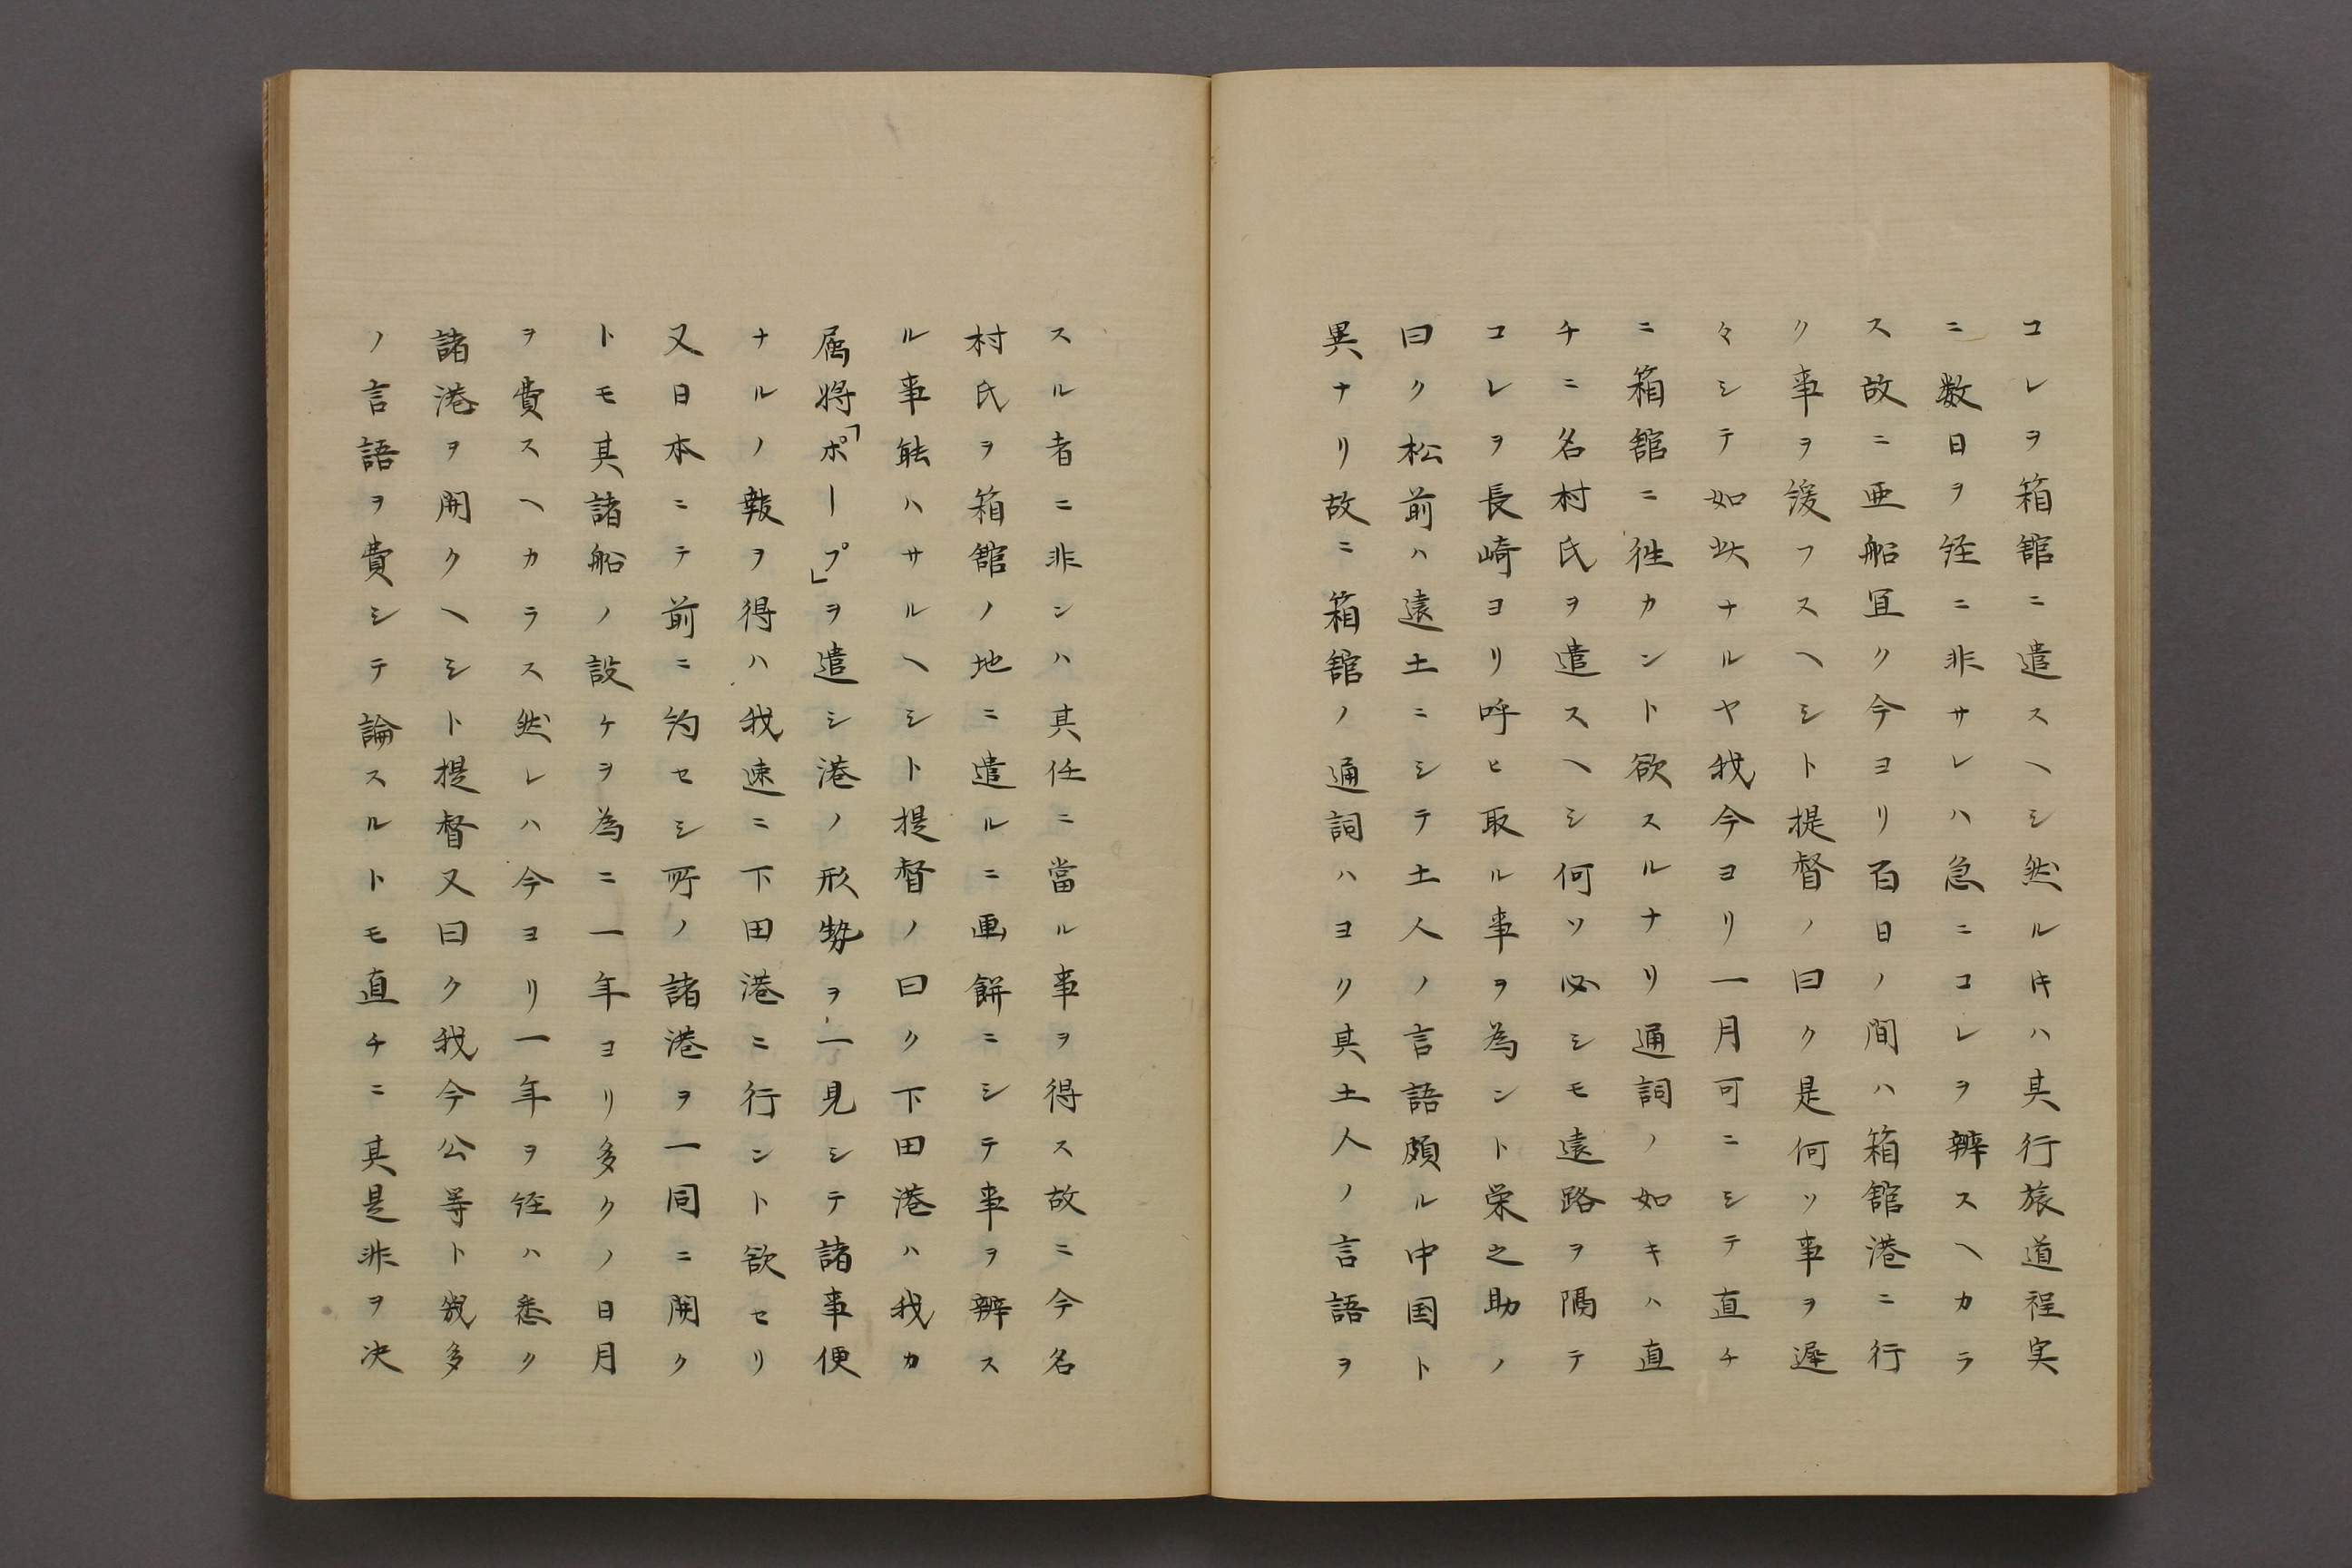 コレヲ箱舘ニ遣スヘシ然ルキハ其行旅道程実
ニ数日ヲ経ニ非サレハ急ニコレヲ辨スヘカラ
ス故ニ亜船冝ク今ヨリ百日ノ間ハ箱舘港ニ行
ク事ヲ緩フスヘシト提督ノ曰ク是何ソ事ヲ遲
々シテ如此ナルヤ我今ヨリ一月可ニシテ直チ
ニ箱舘ニ徃カント欲スルナリ通詞ノ如キハ直
チニ名村氏ヲ遣スヘシ何ソ必シモ遠路ヲ隔テ
コレヲ長崎ヨリ呼ヒ取ル事ヲ為ント栄之助ノ
曰ク松前ハ遠土ニシテ土人ノ言語頗ル中国ト
異ナリ故ニ箱舘ノ通詞ハヨク其土人ノ言語ヲ
スル者ニ非ンハ其任ニ當ル事ヲ得ス故ニ今名
村氏ヲ箱舘ノ地ニ遣ルニ画餅ニシテ事ヲ辨ス
ル事能ハサルヘシト提督ノ曰ク下田港ハ我カ
属将「ポープ」ヲ遣シ港ノ形勢ヲ一見シテ諸事便
ナルノ報ヲ得ハ我速ニ下田港ニ行ント欲セリ
又日本ニテ前ニ約セシ所ノ諸港ヲ一同ニ開ク
トモ其諸船ノ設ケヲ為ニ一年ヨリ多クノ日月
ヲ費スヘカラス然レハ今ヨリ一年ヲ経ハ悉ク
諸港ヲ開クヘシト提督又曰ク我今公等ト幾多
ノ言語ヲ費シテ論スルトモ直チニ其是非ヲ决